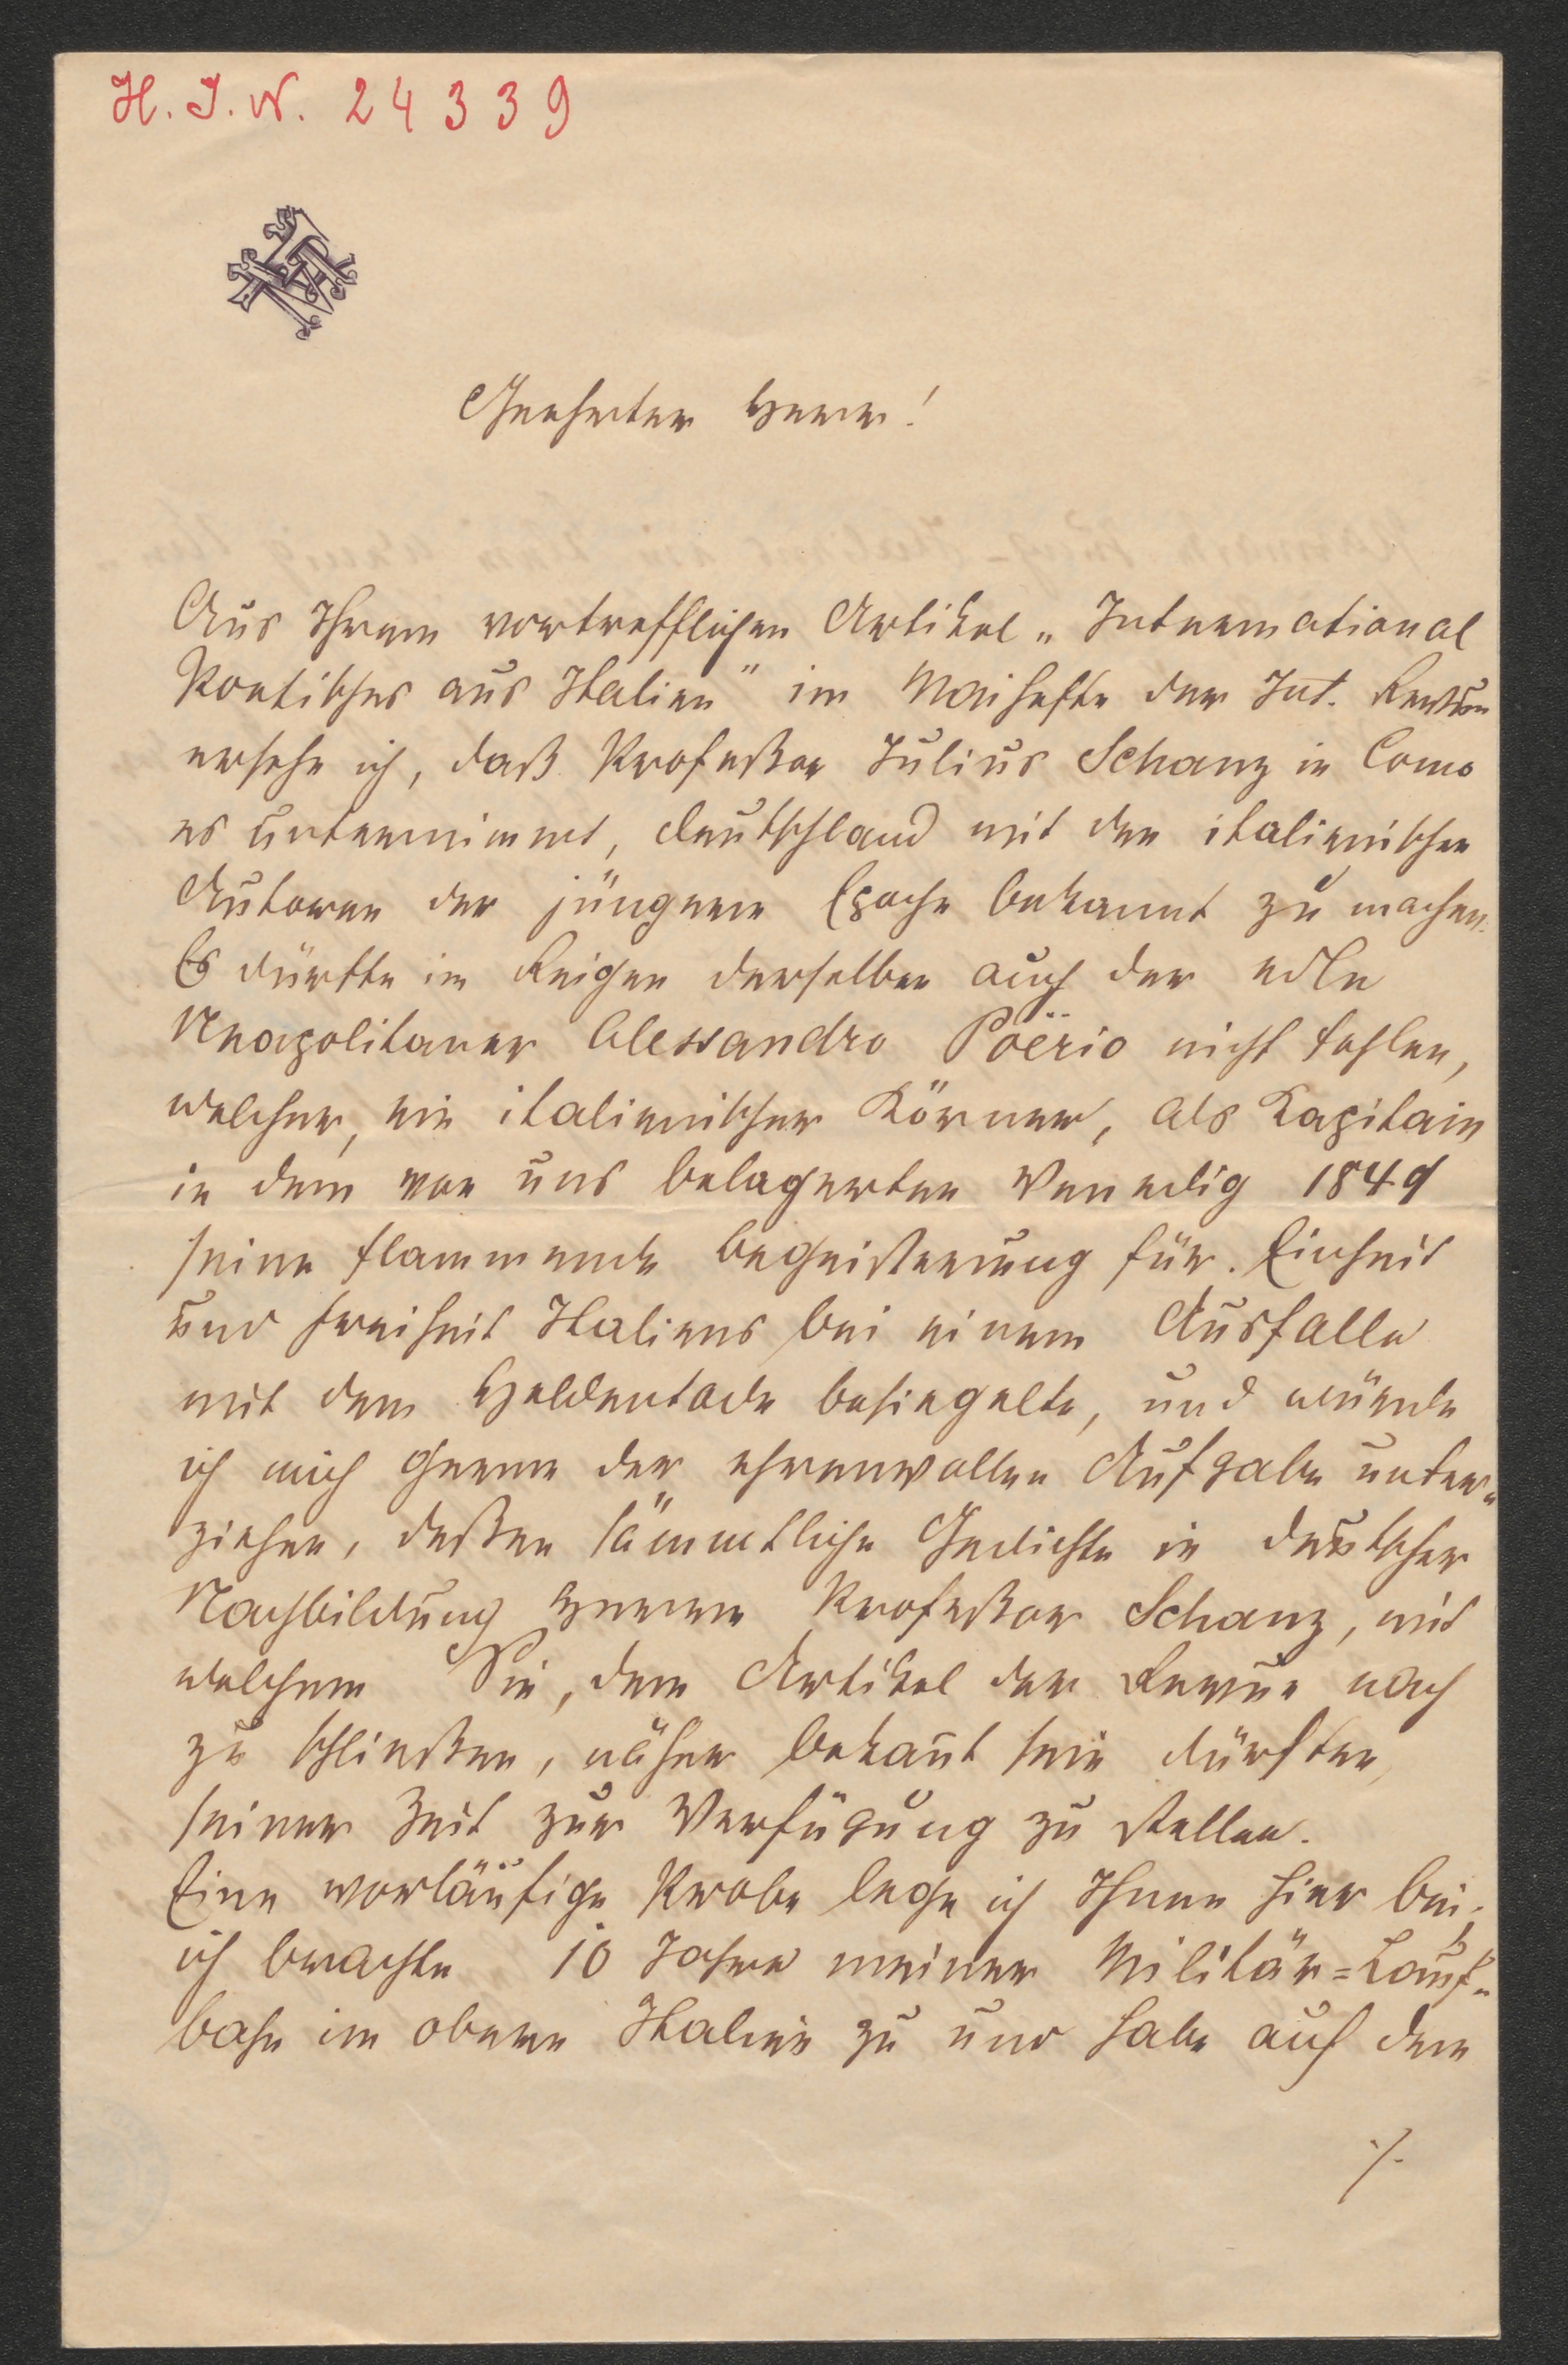 H. I. N. 24339
Geehrter Herr!
Aus Ihrem vortrefflichen Artikel „International
Poetisches aus Italien" im Maihefte der Int. Revue
ersehe ich, daß Profeßor Julius Schanz in Como
es unternimmt, Deutschland mit den italienischen
Autoren der jüngern Epoche bekannt zu machen.
Es dürfte im Reigen derselben auch der edle
Neapolitaner Alessandro Poërio nicht fehlen,
welcher, ein italienischer Körner, als Kapitain
in dem von uns belagerten Venedig 1849
seine flammende Begeisterung für Einheit
und Freiheit Italiens bei einem Ausfalle
mit dem Heldentode besiegelte, und würde
ich mich gerne der ehrenvollen Aufgabe unter„
ziehen, deßen sämmtliche Gedichte in deutscher
Nachbildung Herrn Profeßor Schanz, mit
welchem Sie, dem Artikel der Revue nach
zu schließen, näher bekannt sein dürften,
seiner Zeit zur Verfügung zu stellen.
Eine vorläufige Probe lege ich Ihnen hier bei;
ich brachte 10 Jahre meiner Militär=Lauf„
bahn im obern Italien zu und habe auf dem
./.